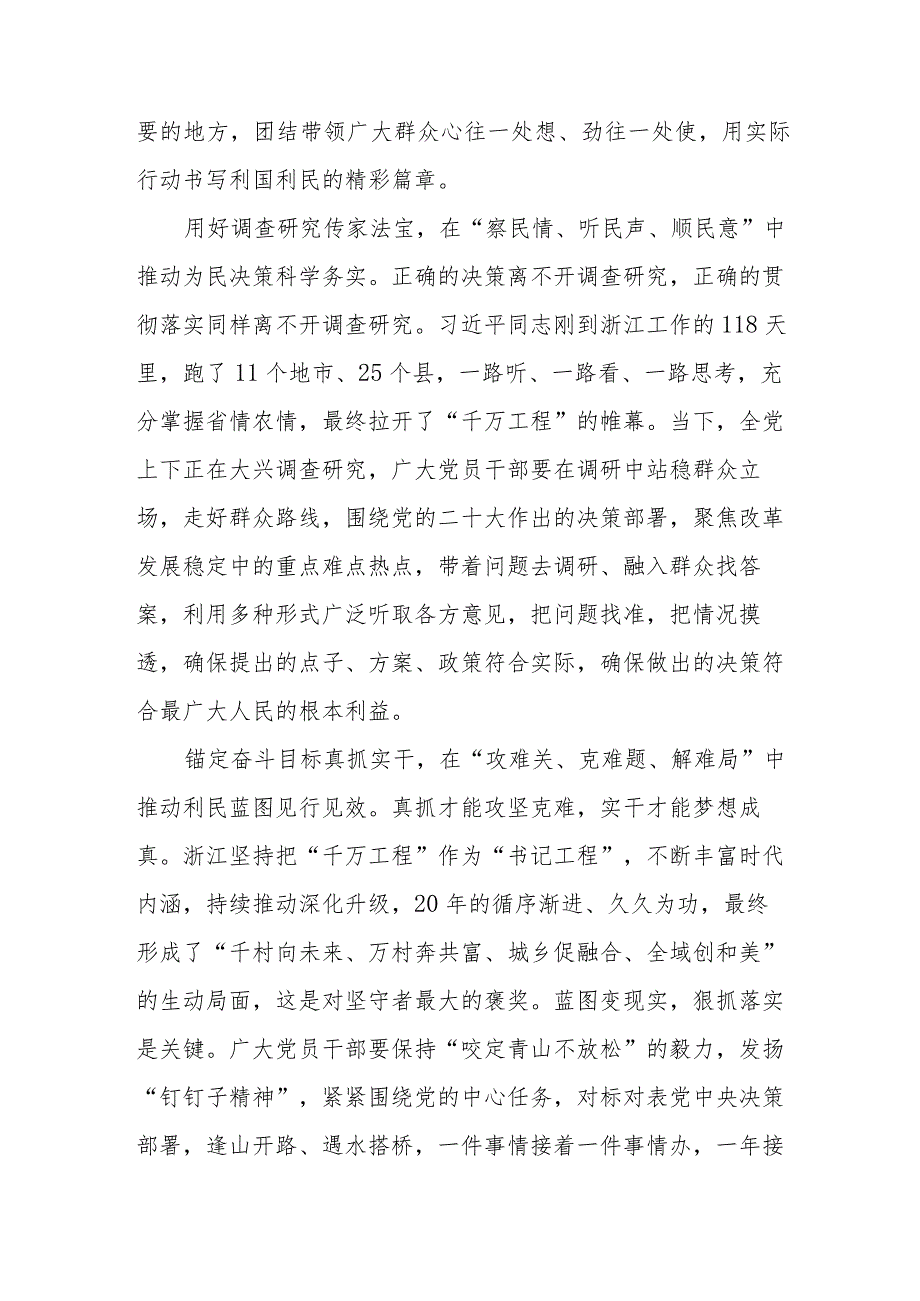 要的地方，团结带领广大群众心往一处想、劲往一处使，用实际
行动书写利国利民的精彩篇章。
用好调查研究传家法宝，在“察民情、听民声、顺民意”中
推动为民决策科学务实。正确的决策离不开调查研究，正确的贯
彻落实同样离不开调查研究。习近平同志刚到浙江工作的 118 天
里，跑了 11 个地市、25 个县，一路听、一路看、一路思考，充
分掌握省情农情，最终拉开了“千万工程”的帷幕。当下，全党
上下正在大兴调查研究，广大党员干部要在调研中站稳群众立
场，走好群众路线，围绕党的二十大作出的决策部署，聚焦改革
发展稳定中的重点难点热点，带着问题去调研、融入群众找答
案，利用多种形式广泛听取各方意见，把问题找准，把情况摸
透，确保提出的点子、方案、政策符合实际，确保做出的决策符
合最广大人民的根本利益。
锚定奋斗目标真抓实干，在“攻难关、克难题、解难局”中
推动利民蓝图见行见效。真抓才能攻坚克难，实干才能梦想成
真。浙江坚持把“千万工程”作为“书记工程”，不断丰富时代
内涵，持续推动深化升级，20 年的循序渐进、久久为功，最终
形成了“千村向未来、万村奔共富、城乡促融合、全域创和美”
的生动局面，这是对坚守者最大的褒奖。蓝图变现实，狠抓落实
是关键。广大党员干部要保持“咬定青山不放松”的毅力，发扬
“钉钉子精神”，紧紧围绕党的中心任务，对标对表党中央决策
部署，逢山开路、遇水搭桥，一件事情接着一件事情办，一年接